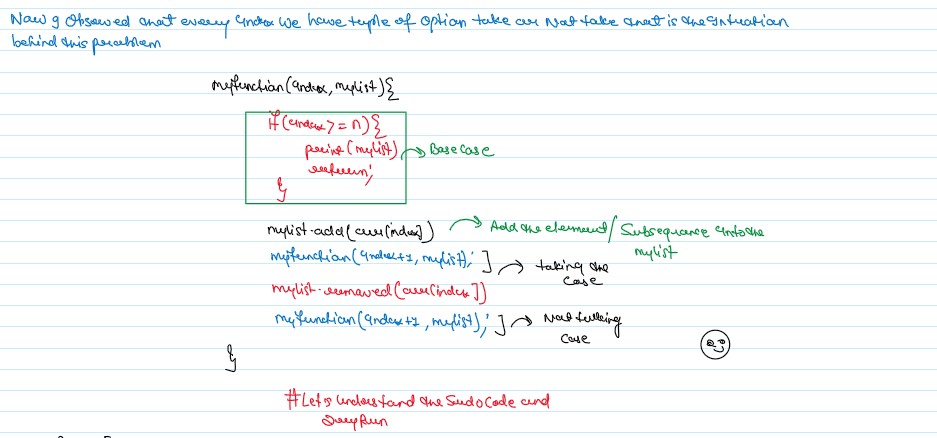 Now I Observed that every index we have tuple of option take or Not take that is the intuation
behind this problem
myfunction(index, mylist){
if(index>=n){
print(mylist) → Base case
return;
}
mylist.add(arr[index]) → Add the element/Subsequance into the
mylist
myfunction(index+1, mylist); ] → taking the
case
mylist.removed(arr[index])
myfunction(index+1, mylist); ] → Not taking
case
}
#Let's understand the Sudo Code and
DryRun